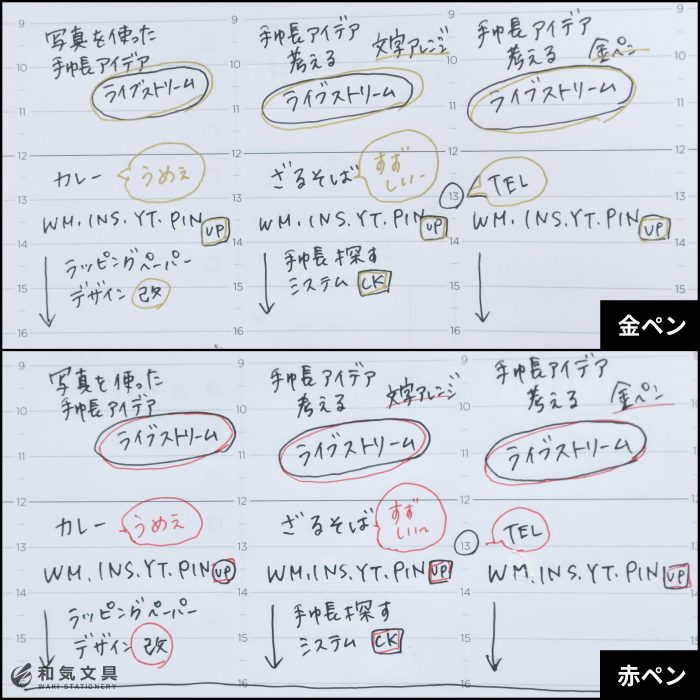 9
10
11
12
13
14
15
16
写真を使った
手帳アイデア
ライブストリーム
カレー うめぇ
WM.INS.YT.PIN UP
ラッピングペーパー
デザイン 改
9
10
11
12
13
14
15
16
手帳アイデア
考える 文字アレンジ
ライブストリーム
ざるそば すずしいー
WM.INS.YT.PIN UP
手帳探す
システム CK
9
10
11
12
13
14
16
手帳アイデア
考える 金ペン
ライブストリーム
TEL
WM.INS.YT.PIN UP
金ペン
9
10
11
12
13
14
15
写真を使った
手帳アイデア
ライブストリーム
カレー うめぇ
WM.INS.YT.PIN UP
ラッピングペーパー
デザイン 改
9
10
11
12
13
14
15
手帳アイデア
考える 文字アレンジ
ライブストリーム
ざるそば すずしい〜
WM.INS.YT.PIN UP
手帳探す
システム CK
9
10
11
12
13
14
15
手帳アイデア
考える 金ペン
ライブストリーム
TEL
WM.INS.YT.PIN UP
赤ペン
和気文具
WAKI STATIONERY